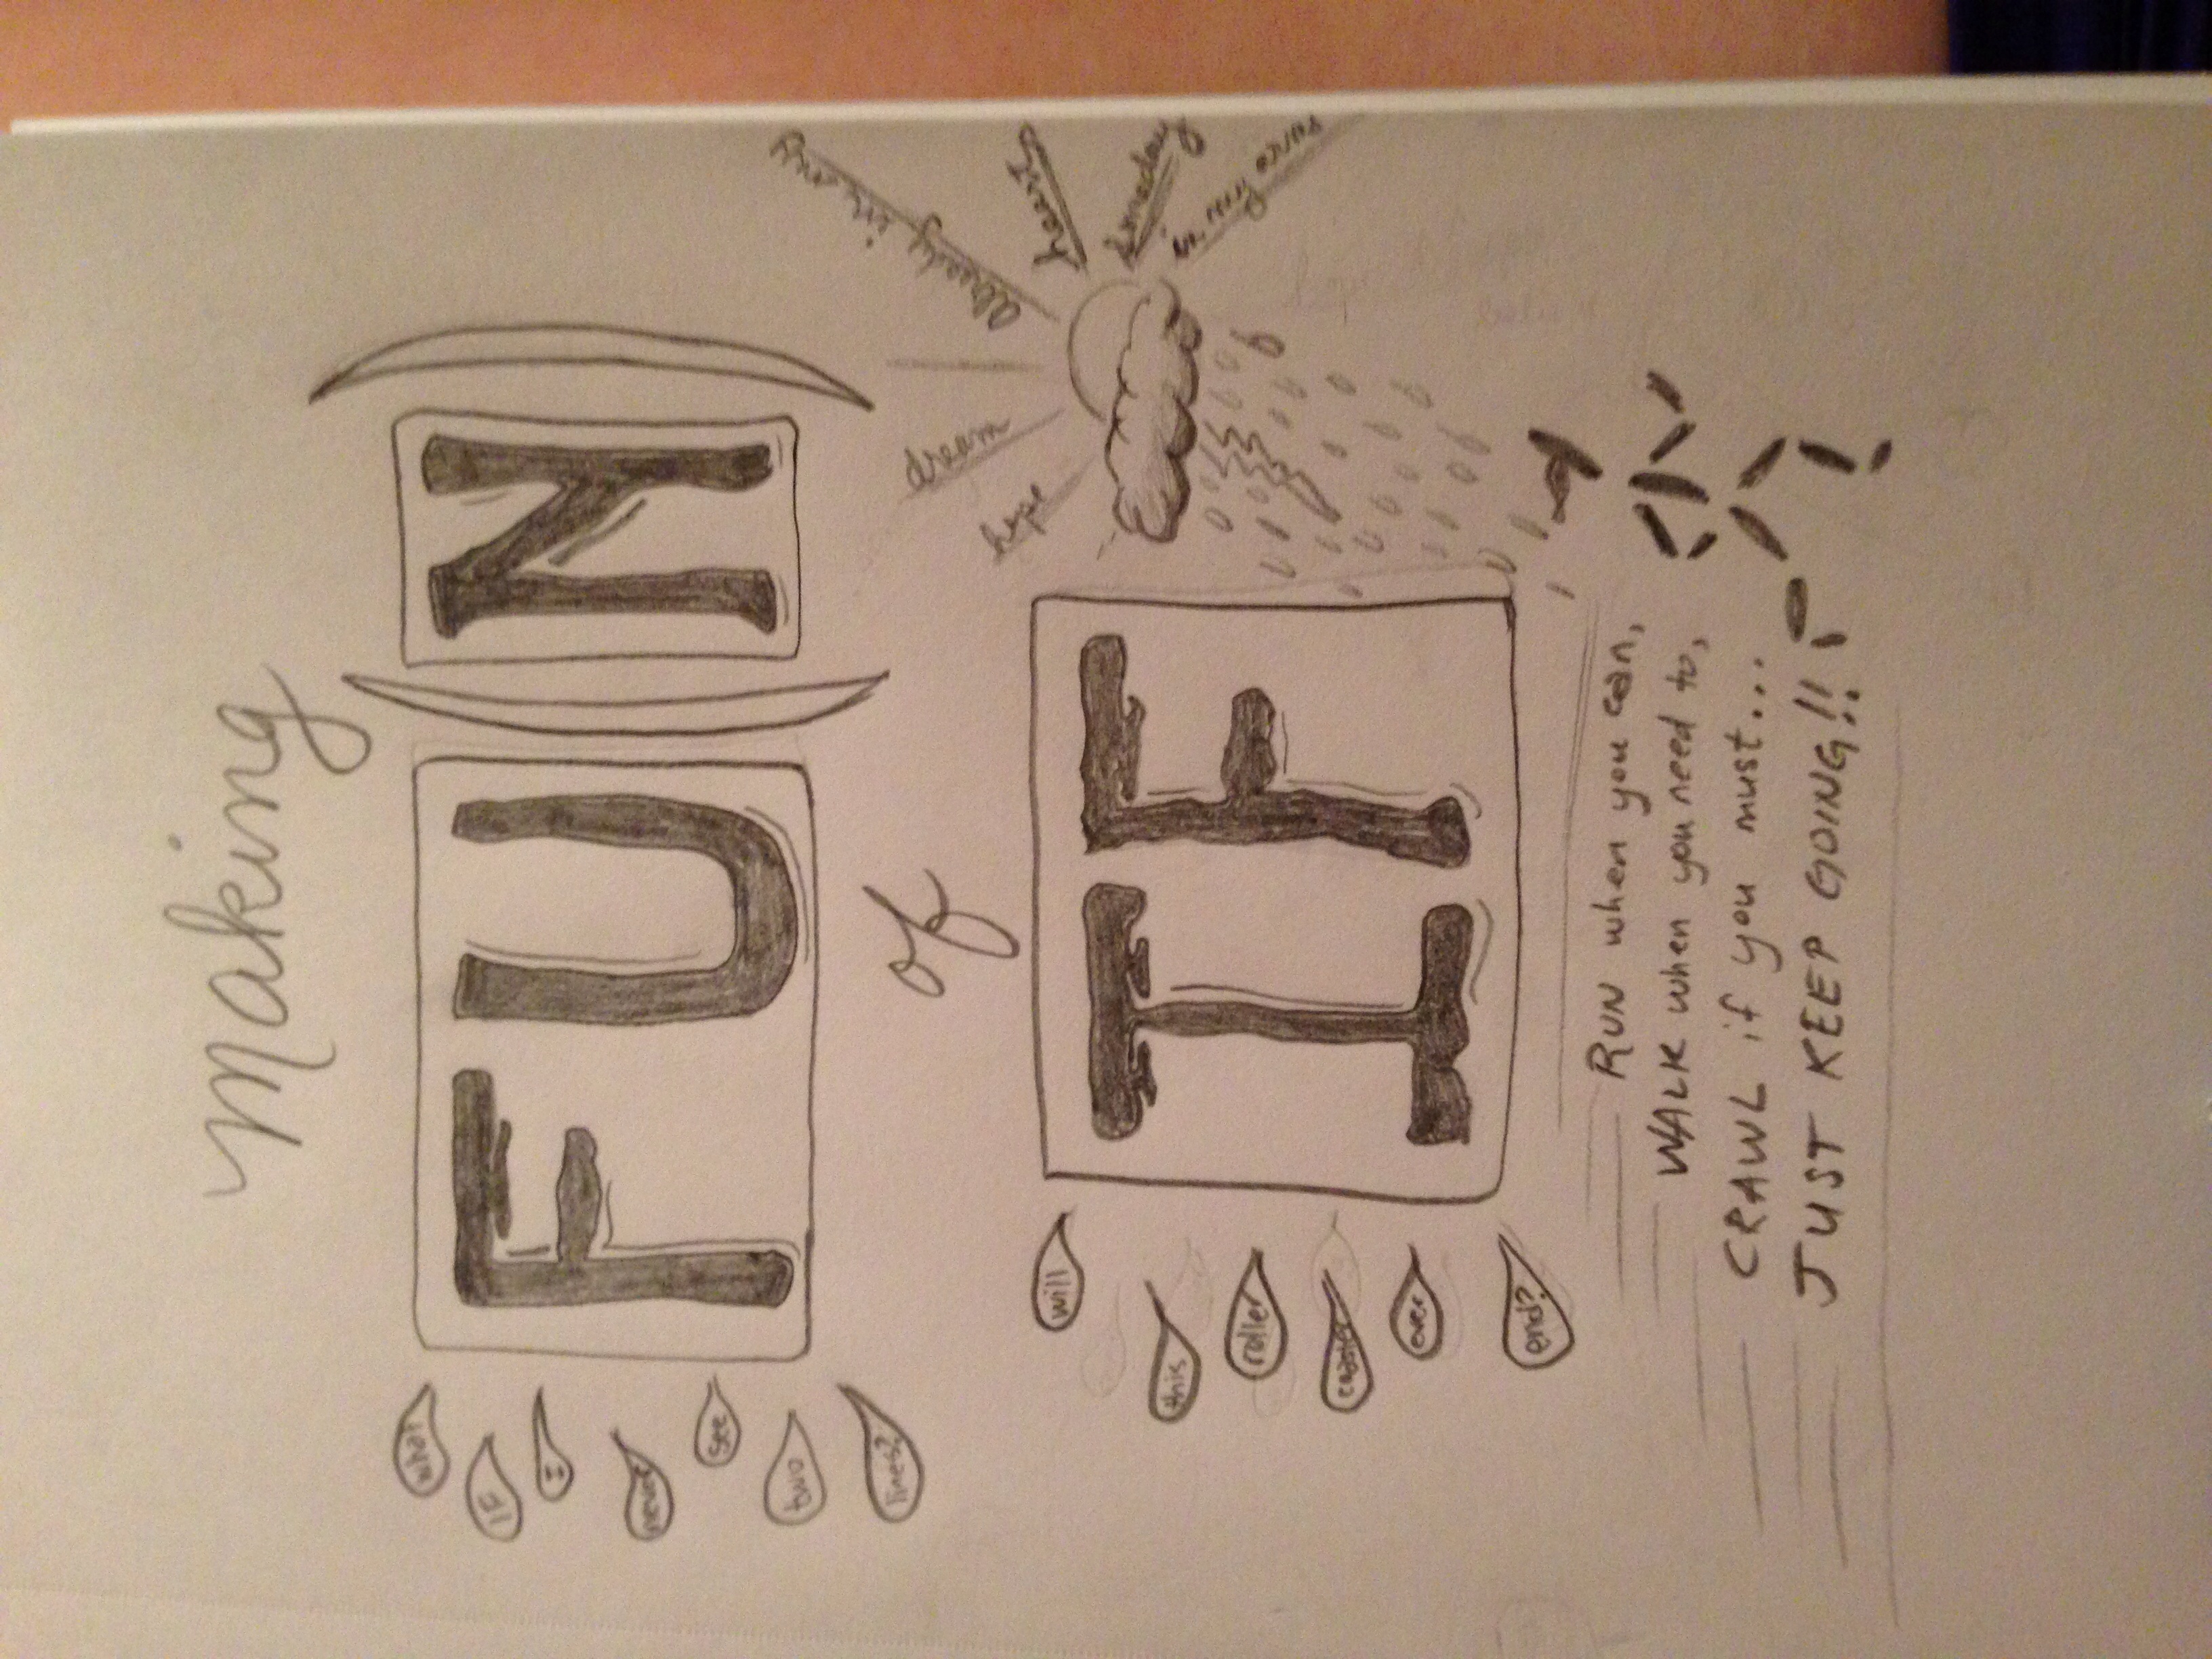 Making
FU(N)
what
IF
I
never
see
two
lines?
of
hope
dream
already in my
heart
someday
in my arms
IF
will
this
roller
coaster
ever
end?
RUN when you can,
WALK when you need to,
CRAWL if you must...
JUST KEEP GOING!!